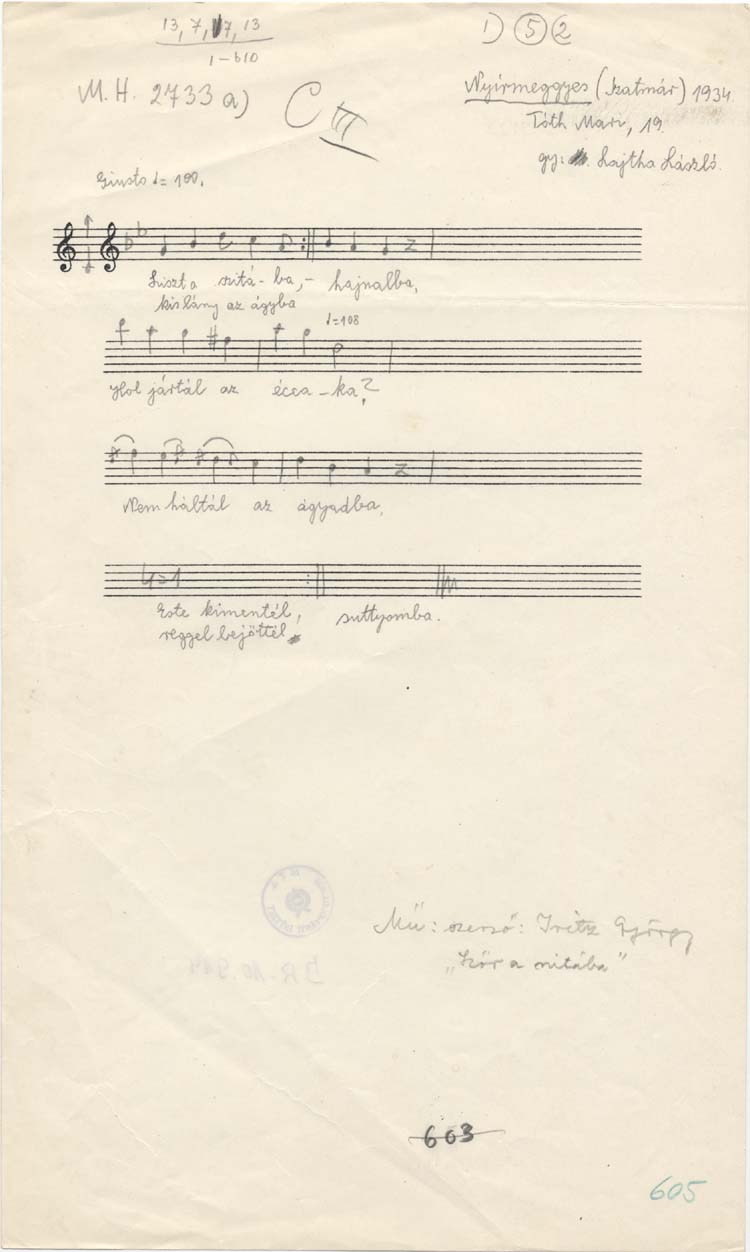 13, 7, 7, 13
1 – b10
1) 5 2
M. H. 2733 a)
C III
Nyírmeggyes (Szatmár) 1934.
Tóth Mari, 19.
gy: Lajtha László.
Giusto = 190.
Liszt a szitá – ba, – hajnalba,
kislány az ágyba
= 108
Hol jártál az écca – ka?
Nem háltál az ágyadba,
4 = 1
Este kimentél, suttyomba.
reggel bejöttél
Mű: szerző: György
„Ször a szitába”
603
605